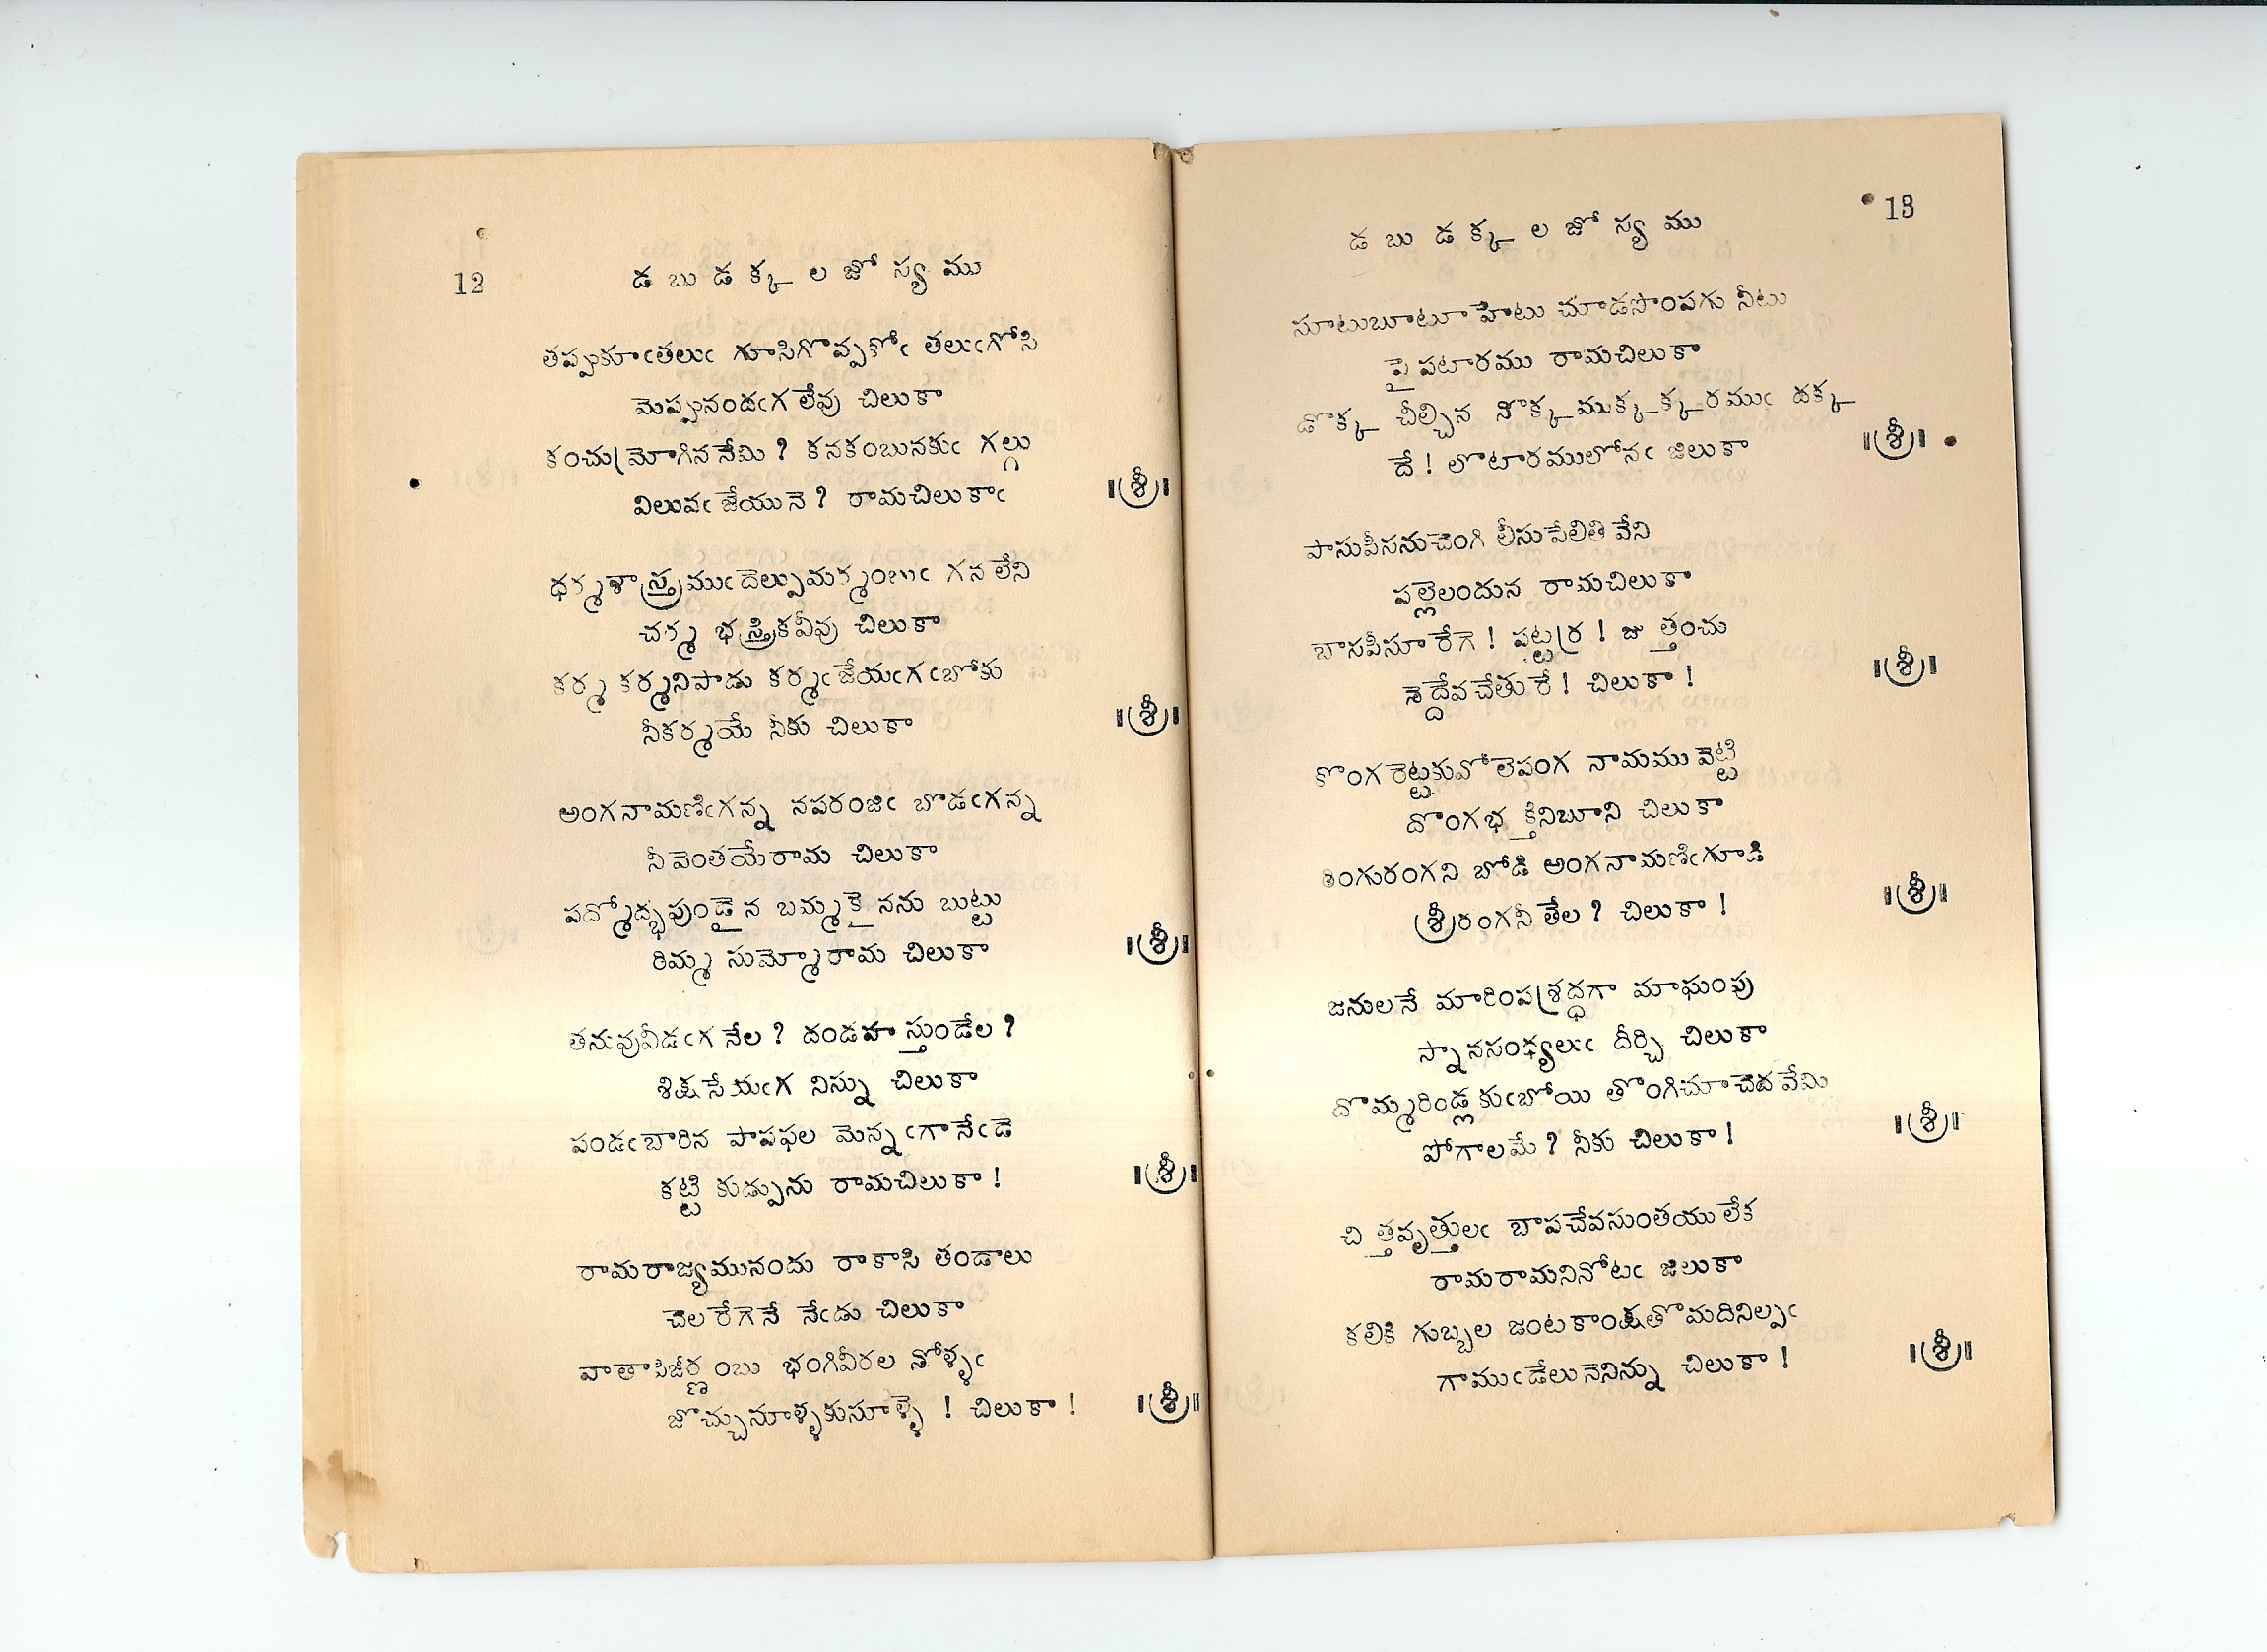 12
డ బు డ క్క ల జో స్య ము
తప్పుకూఁతలుఁ గూసిగొప్పకోఁ తలుఁగోసి
మెప్పునందఁగ లేవు చిలుకా
కంచుమ్రోగిననేమి ? కనకంబునకుఁ గల్గు
విలువఁ జేయునె ? రామచిలుకాఁ ॥శ్రీ॥
ధర్మశాస్త్రముఁ దెల్పుమర్మంబుఁ గన లేని
చర్మ భస్త్రికవీవు చిలుకా
కర్మ కర్మనిపాడు కర్మఁ జేయఁగఁబోకు
నీకర్మయే నీకు చిలుకా ॥శ్రీ॥
అంగనామణిఁగన్న నపరంజిఁ బొడఁగన్న
నీ వెంతయేరామ చిలుకా
పద్మోద్భవుండై న బమ్మకై నను బుట్టు
రిమ్మ సుమ్మోరామ చిలుకా ॥శ్రీ॥
తనువువీడఁగ నేల ? దండహ స్తుండేల ?
శిక్షసేయఁగ నిన్ను చిలుకా
పండఁబారిన పాపఫల మెన్నఁగా నేఁడె
కట్టి కుడ్పును రామచిలుకా ! ॥శ్రీ॥
రామరాజ్యమునందు రాకాసి తండాలు
చెల రేగెనే నేఁడు చిలుకా
వాతాపిజీర్ణంబు భంగివీరల నోళ్ళఁ
జొచ్చునూళ్ళకునూళ్ళె ! చిలుకా ! ॥శ్రీ॥
డ బు డ క్క ల జో స్య ము
13
సూటుబూటూ హేటు చూడసొంపగు నీటు
పై పటారము రామచిలుకా
డొక్క చీల్చిన నొక్కముక్కక్కరముఁ దక్క
దే ! లొటారములోనఁ జిలుకా ॥శ్రీ॥
పాసుపీసనుచెంగి లీసుపేలితి వేని
పల్లెలందున రామచిలుకా
బాసపీసూ రేగె ! పట్టర్ర ! జు త్తంచు
నెద్దేవచేతు రే ! చిలుకా ! ॥శ్రీ॥
కొంగ రెట్టకువోలెపంగ నామము వెట్టి
దొంగభ క్తినిబూని చిలుకా
రింగురంగని బోడి అంగనామణిఁగూడి
శ్రీరంగనీ తేల ? చిలుకా ! ॥శ్రీ॥
జనులనే మారింపశ్రద్ధగా మాఘంపు
స్నానసంధ్యలుఁ దీర్చి చిలుకా
దొమ్మరిండ్లకుఁబోయి తొంగిచూచెద వేమి
పోగాలమే ? నీకు చిలుకా ! ॥శ్రీ॥
చి త్తవృత్తులఁ బాపచేవసుంతయు లేక
రామరామనినోటఁ జిలుకా
కలికి గుబ్బల జంటకాంక్షతొమదినిల్పఁ
గాముఁడేలునెనిన్ను చిలుకా ! ॥శ్రీ॥